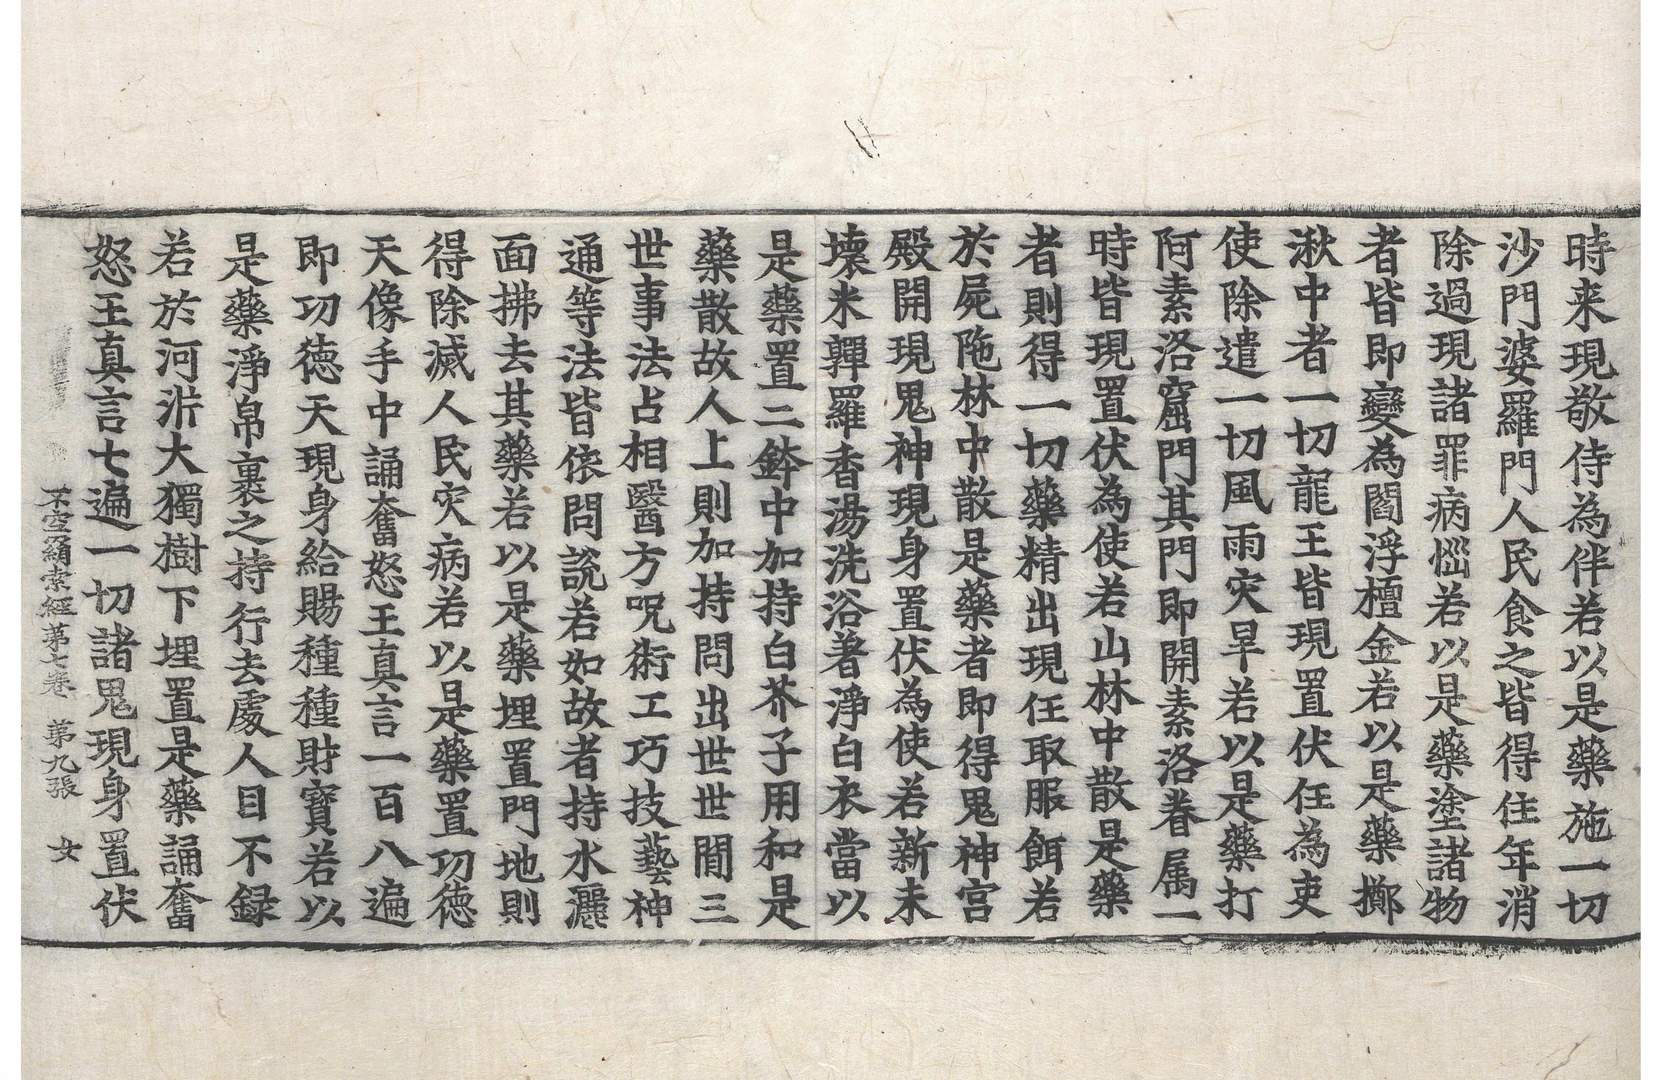 時来現敬侍為伴若以是藥施一切
沙門婆羅門人民食之皆得住年消
除過現諸罪病惱若以是藥塗諸物
者皆即變為閻浮檀金若以是藥擲
湫中者一切龍王皆現置伏任為吏
使除遣一切風雨灾旱若以是藥打
阿素洛窟門其門即開素洛眷属一
時皆現置伏為使若山林中散是藥
者則得一切藥精出現任取服餌若
於屍陁林中散是藥者即得鬼神宮
殿開現鬼神現身置伏為使若新未
壊米糶羅香湯洗浴著淨白衣當以
是藥置二鉢中加持白芥子用和是
藥散故人上則加持問出世世間三
世事法占相醫方呪術工巧技藝神
通等法皆依問說若如故者持水灑
面拂去其藥若以是藥埋置門地則
得除滅人民灾病若以是藥置功德
天像手中誦奮怒王真言一百八遍
即功徳天現身給賜種種財寳若以
是藥淨帛裹之持行去處人目不録
若於河泝大獨樹下埋置是藥誦奮
怒王真言七遍一切諸鬼現身置伏
不空羂索經第七卷 第九張 女